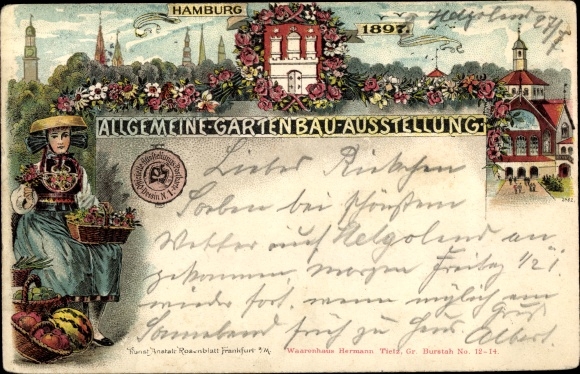 HAMBURG
1897.
Helgoland 27/7
ALLGEMEINE-GARTENBAU-AUSSTELLUNG
Lieber
Soeben bei schönstem
Wetter auf Helgoland an-
gekommen, morgen Freitag 1/2 1
wieder fort, wenn möglich am
Sonnabend früh zu Haus. Gruß
Albert.
Kunst Anstalt Rosenblatt Frankfurt a/M.
Waarenhaus Hermann Tietz, Gr. Burstah No. 12-14.